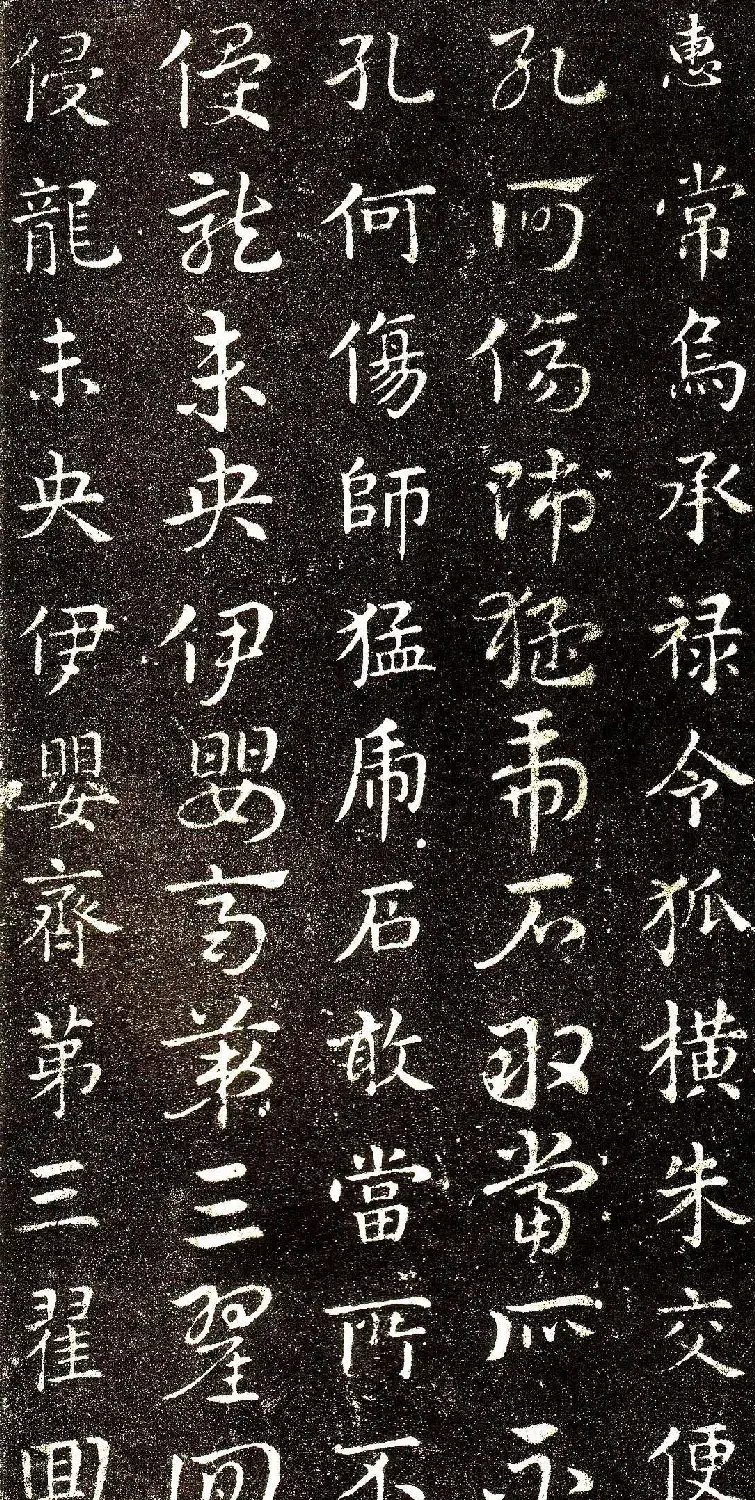 惠常烏承祿令狐橫朱交便
孔何傷師猛虎石敢當所不
孔何傷師猛虎石敢當所不
侵龍未央伊嬰齊第三翟回
侵龍未央伊嬰齊第三翟回